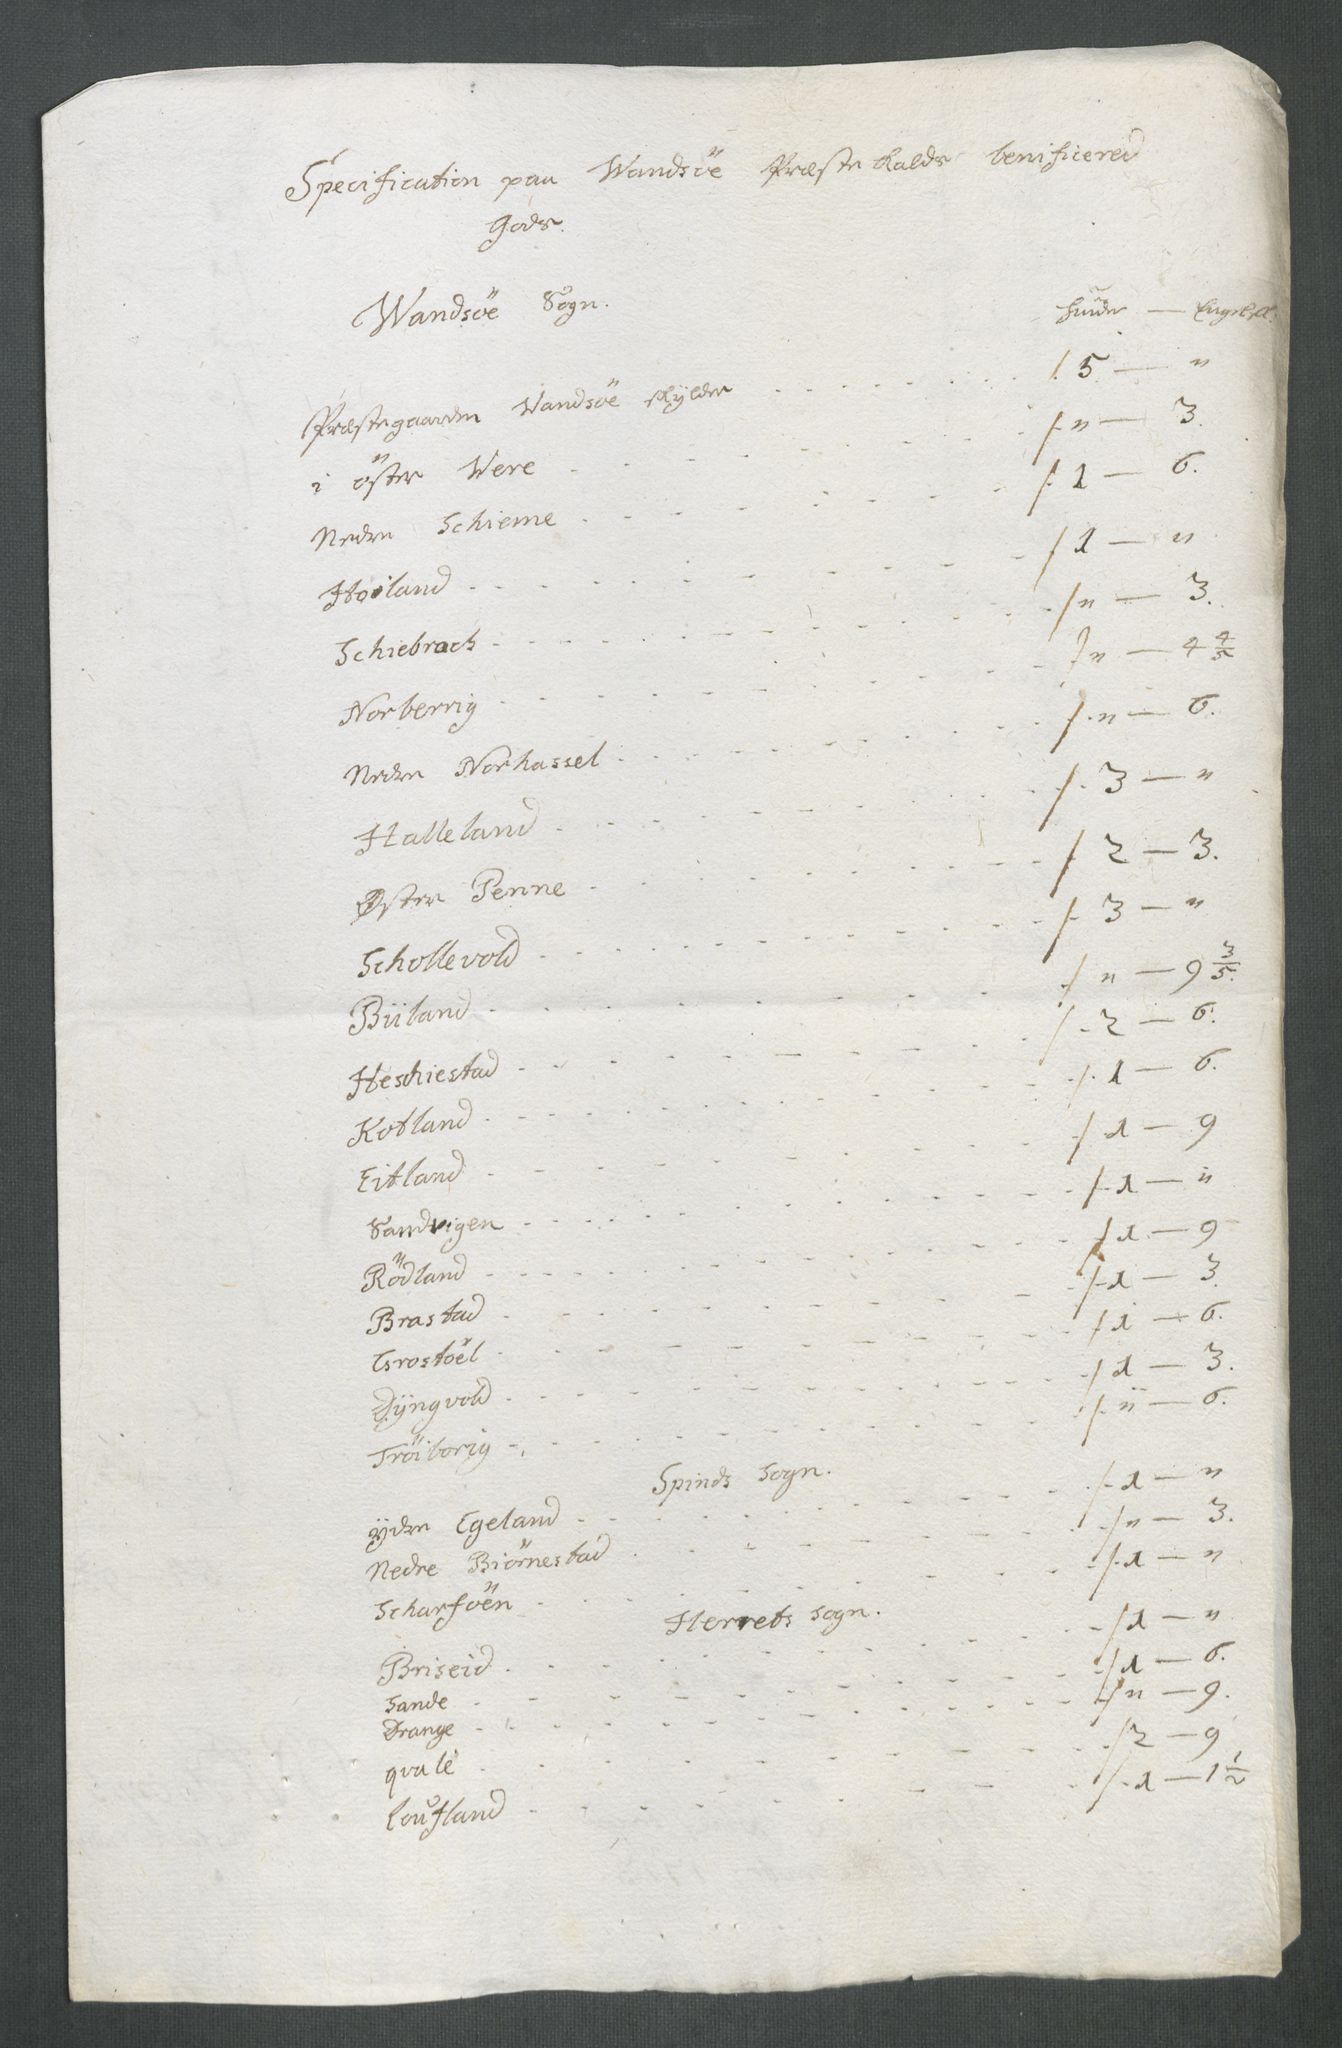 Specification paa Wandsöe Præste Kalds benificered
Gods.
Wandsöe Sogn. huder — Engelsk.
Præstegaarden Wandsöe skylder . . . 5 — "
i öster Were . . . " — 3.
Nedre Schieme . . . 1 — 6.
Hoiland . . . 1 — "
Schiebrock . . . " — 3.
Norberrig . . . " — 4 4/5
Nedre Norhassel . . . " — 6.
Halleland . . . 3 — "
Øster Penne . . . 2 — 3.
Schollevold . . . 3 — "
Biiland . . . " — 9 3/5.
Heschiestad . . . 2 — 6.
Kotland . . . 1 — 6.
Eitland . . . 1 — 9
Sandvigen . . . 1 — "
Rödland . . . 1 — 9
Brastad . . . 1 — 3.
Grostöel . . . 1 — 6.
Dyngvold . . . 1 — 3.
Tröiborig . . . " — 6.
Spinds Sogn.
ÿdre Egeland . . . 1 — "
Nedre Biörnestad . . . " — 3.
Scharföen . . . 1 — "
Herrets sogn.
Briseid . . . 1 — "
Sande . . . 1 — 6.
Drange . . . " — 9.
qvale . . . 2 — 9
Loufland . . . 1 — 1 1/2